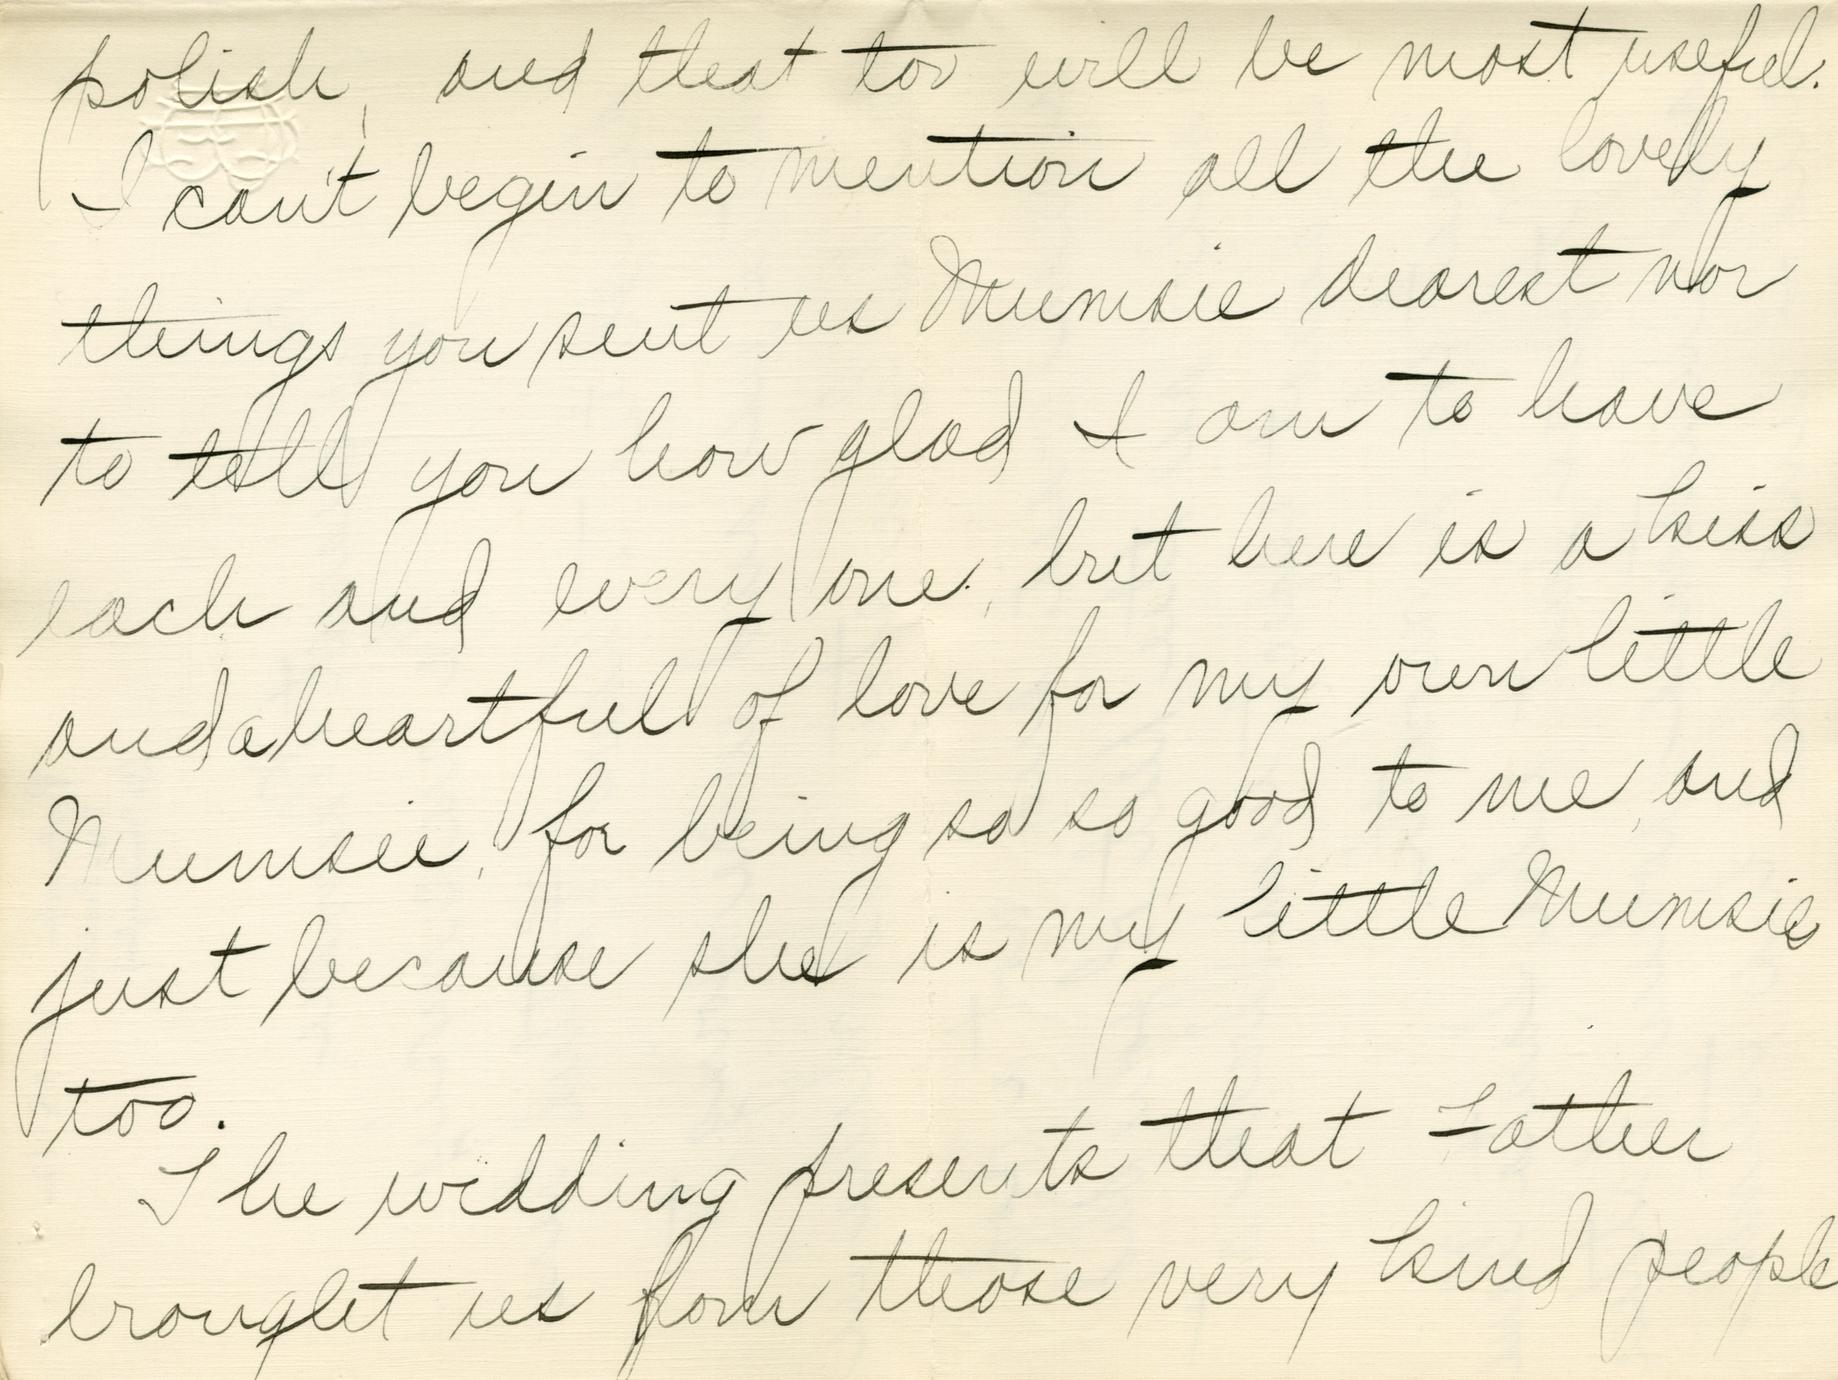 polish, and that too will be most useful.
I can't begin to mention all the lovely
things you sent us Mumsie dearest nor
to tell you how glad I am to have
each and every one, but here is a kiss
and a heartful of love for my own little
Mumsie, for being so so good to me, and
just because she is my little Mumsie
too.
The wedding presents that Father
brought us from those very kind people